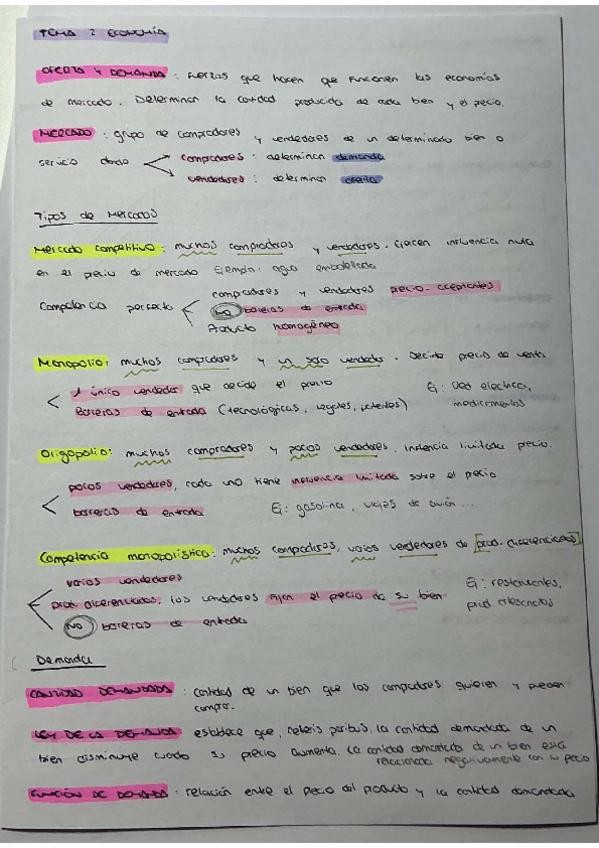 TEMA 2 ECONOMÍA
OFERTA Y DEMANDA : Fuerzas que hacen que funcionen las economías
de mercado. Determinan la cantidad producida de cada bien y el precio.
MERCADO : grupo de compradores y vendedores de un determinado bien o
servicio dado
compradores : determinan demanda
vendedores : determinan oferta
Tipos de Mercados
Mercado competitivo : muchos compradores y vendedores. Ejercen influencia nula
en el precio de mercado Ejemplo: agua embotellada
Competencia perfecta
compradores y vendedores precio-aceptantes
NO barreras de entrada
Producto homogéneo
Monopolio: muchos compradores y un solo vendedor. Decide precio de venta
1 único vendedor que decide el precio
Barreras de entrada (tecnológicas, legales, patentes)
Ej: Red eléctrica,
medicamentos
Oligopolio: muchos compradores y pocos vendedores. influencia limitada precio.
pocos vendedores, cada uno tiene influencia limitada sobre el precio
barreras de entrada
Ej: gasolina, viajes de avión ...
Competencia monopolística: muchos compradores, varios vendedores de [prod. diferenciados]
varios vendedores
prod. diferenciados, los vendedores fijan el precio de su bien
NO barreras de entrada
Ej: restaurantes,
prod artesanales
Demanda
CANTIDAD DEMANDADA : cantidad de un bien que los compradores quieren y pueden
comprar.
LEY DE LA DEMANDA: establece que, ceteris paribus, la cantidad demandada de un
bien disminuye cuando su precio aumenta. La cantidad demandada de un bien está
relacionada negativamente con su precio
FUNCIÓN DE DEMANDA : relación entre el precio del producto y la cantidad demandada